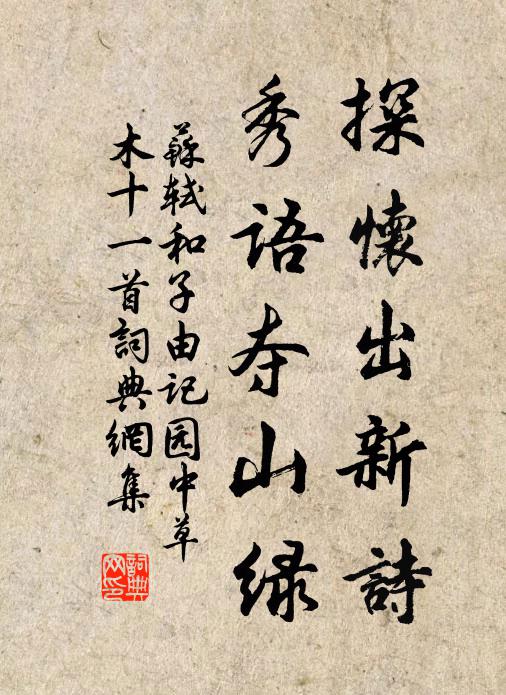 探懷出新詩
秀語夺山绿
蘇轼和子由记园中草
木十一首詞典網集
詞典
网印